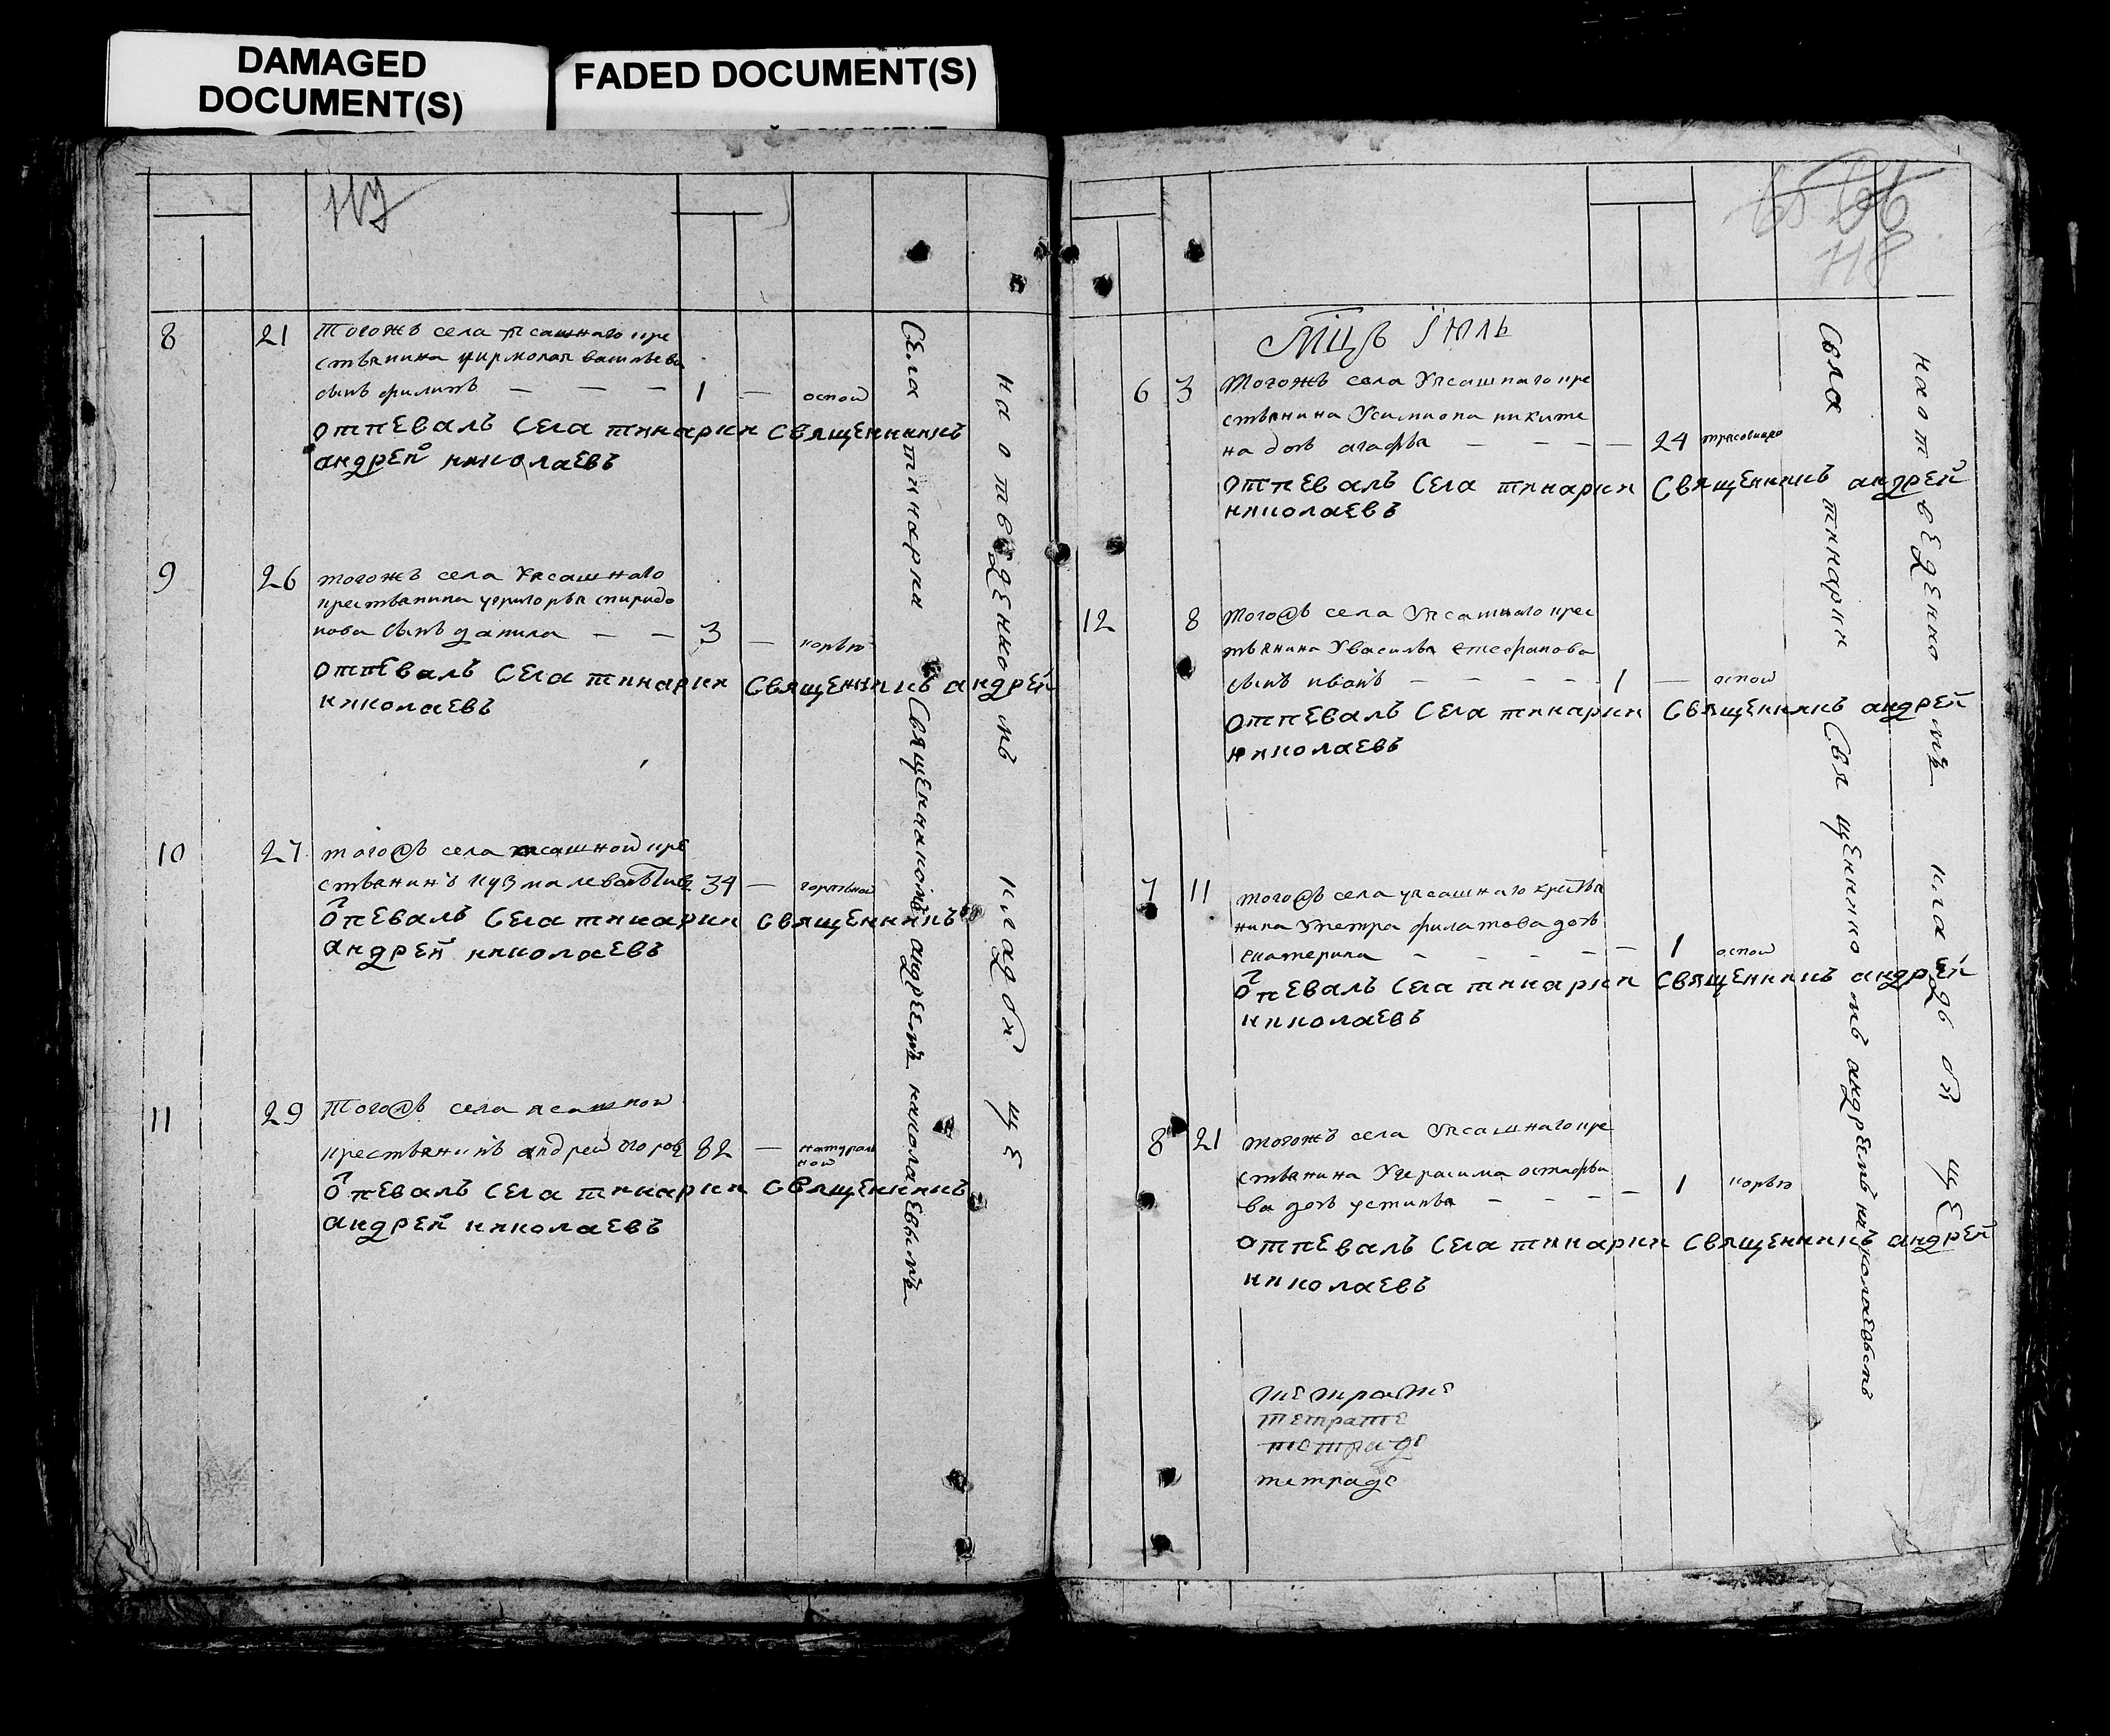 DAMAGED
DOCUMENT(S)
FADED DOCUMENT(S)
117
8 21 тогожъ села ясашнаго кре
стьянина уирмолая васильева
сынъ филипъ — — — 1 — оспою
отпевалъ села тинарки священникъ
андрей николаевъ
9 26 тогожъ села Уясашнаго
крестьянина угригорья спиридо
нова сынъ данила — — 3 — корью
отпевалъ села тинарки священникъ андрей
николаевъ
10 27 тогоѳъ села ясашной кре
стьянинъ кузма 34 —
опевалъ села тинарки священникъ
андрей николаевъ
11 29 тогоѳъ села ясашной
крестьянинъ андрей 82 — натурал
ной
опевалъ села тинарки священникъ
андрей николаевъ
Села тинарки священникомъ андреемъ николаевымъ
на отведенномъ кладбище
65 66
118
Мцъ Іюль
6 3 тогожъ села Уясашнаго кре
стьянина Усимиона никити
на дочь агафья — — — — 24
отпевалъ села тинарки священникъ андрей
николаевъ
12 8 тогоѳъ села Уясашнаго крес
тьянина Увасилья стефанова
сынъ иванъ — — — — 1 — оспою
отпевалъ села тинарки священникъ андрей
николаевъ
7 11 тогоѳъ села уясашнаго крестья
нина Упетра филатова дочь
екатерина — — — — — 1 оспою
опевалъ села тинарки священникъ андрей
николаевъ
8 21 тогожъ села Уясашнаго кре
стьянина Угерасима остафье
ва дочь устинья — — — — 1 корью
отпевалъ села тинарки священникъ андрей
николаевъ
тетрате
тетрате
тетраде
тетраде
Села тинарки священникомъ андреемъ николаевымъ
на отведенномъ кладбище